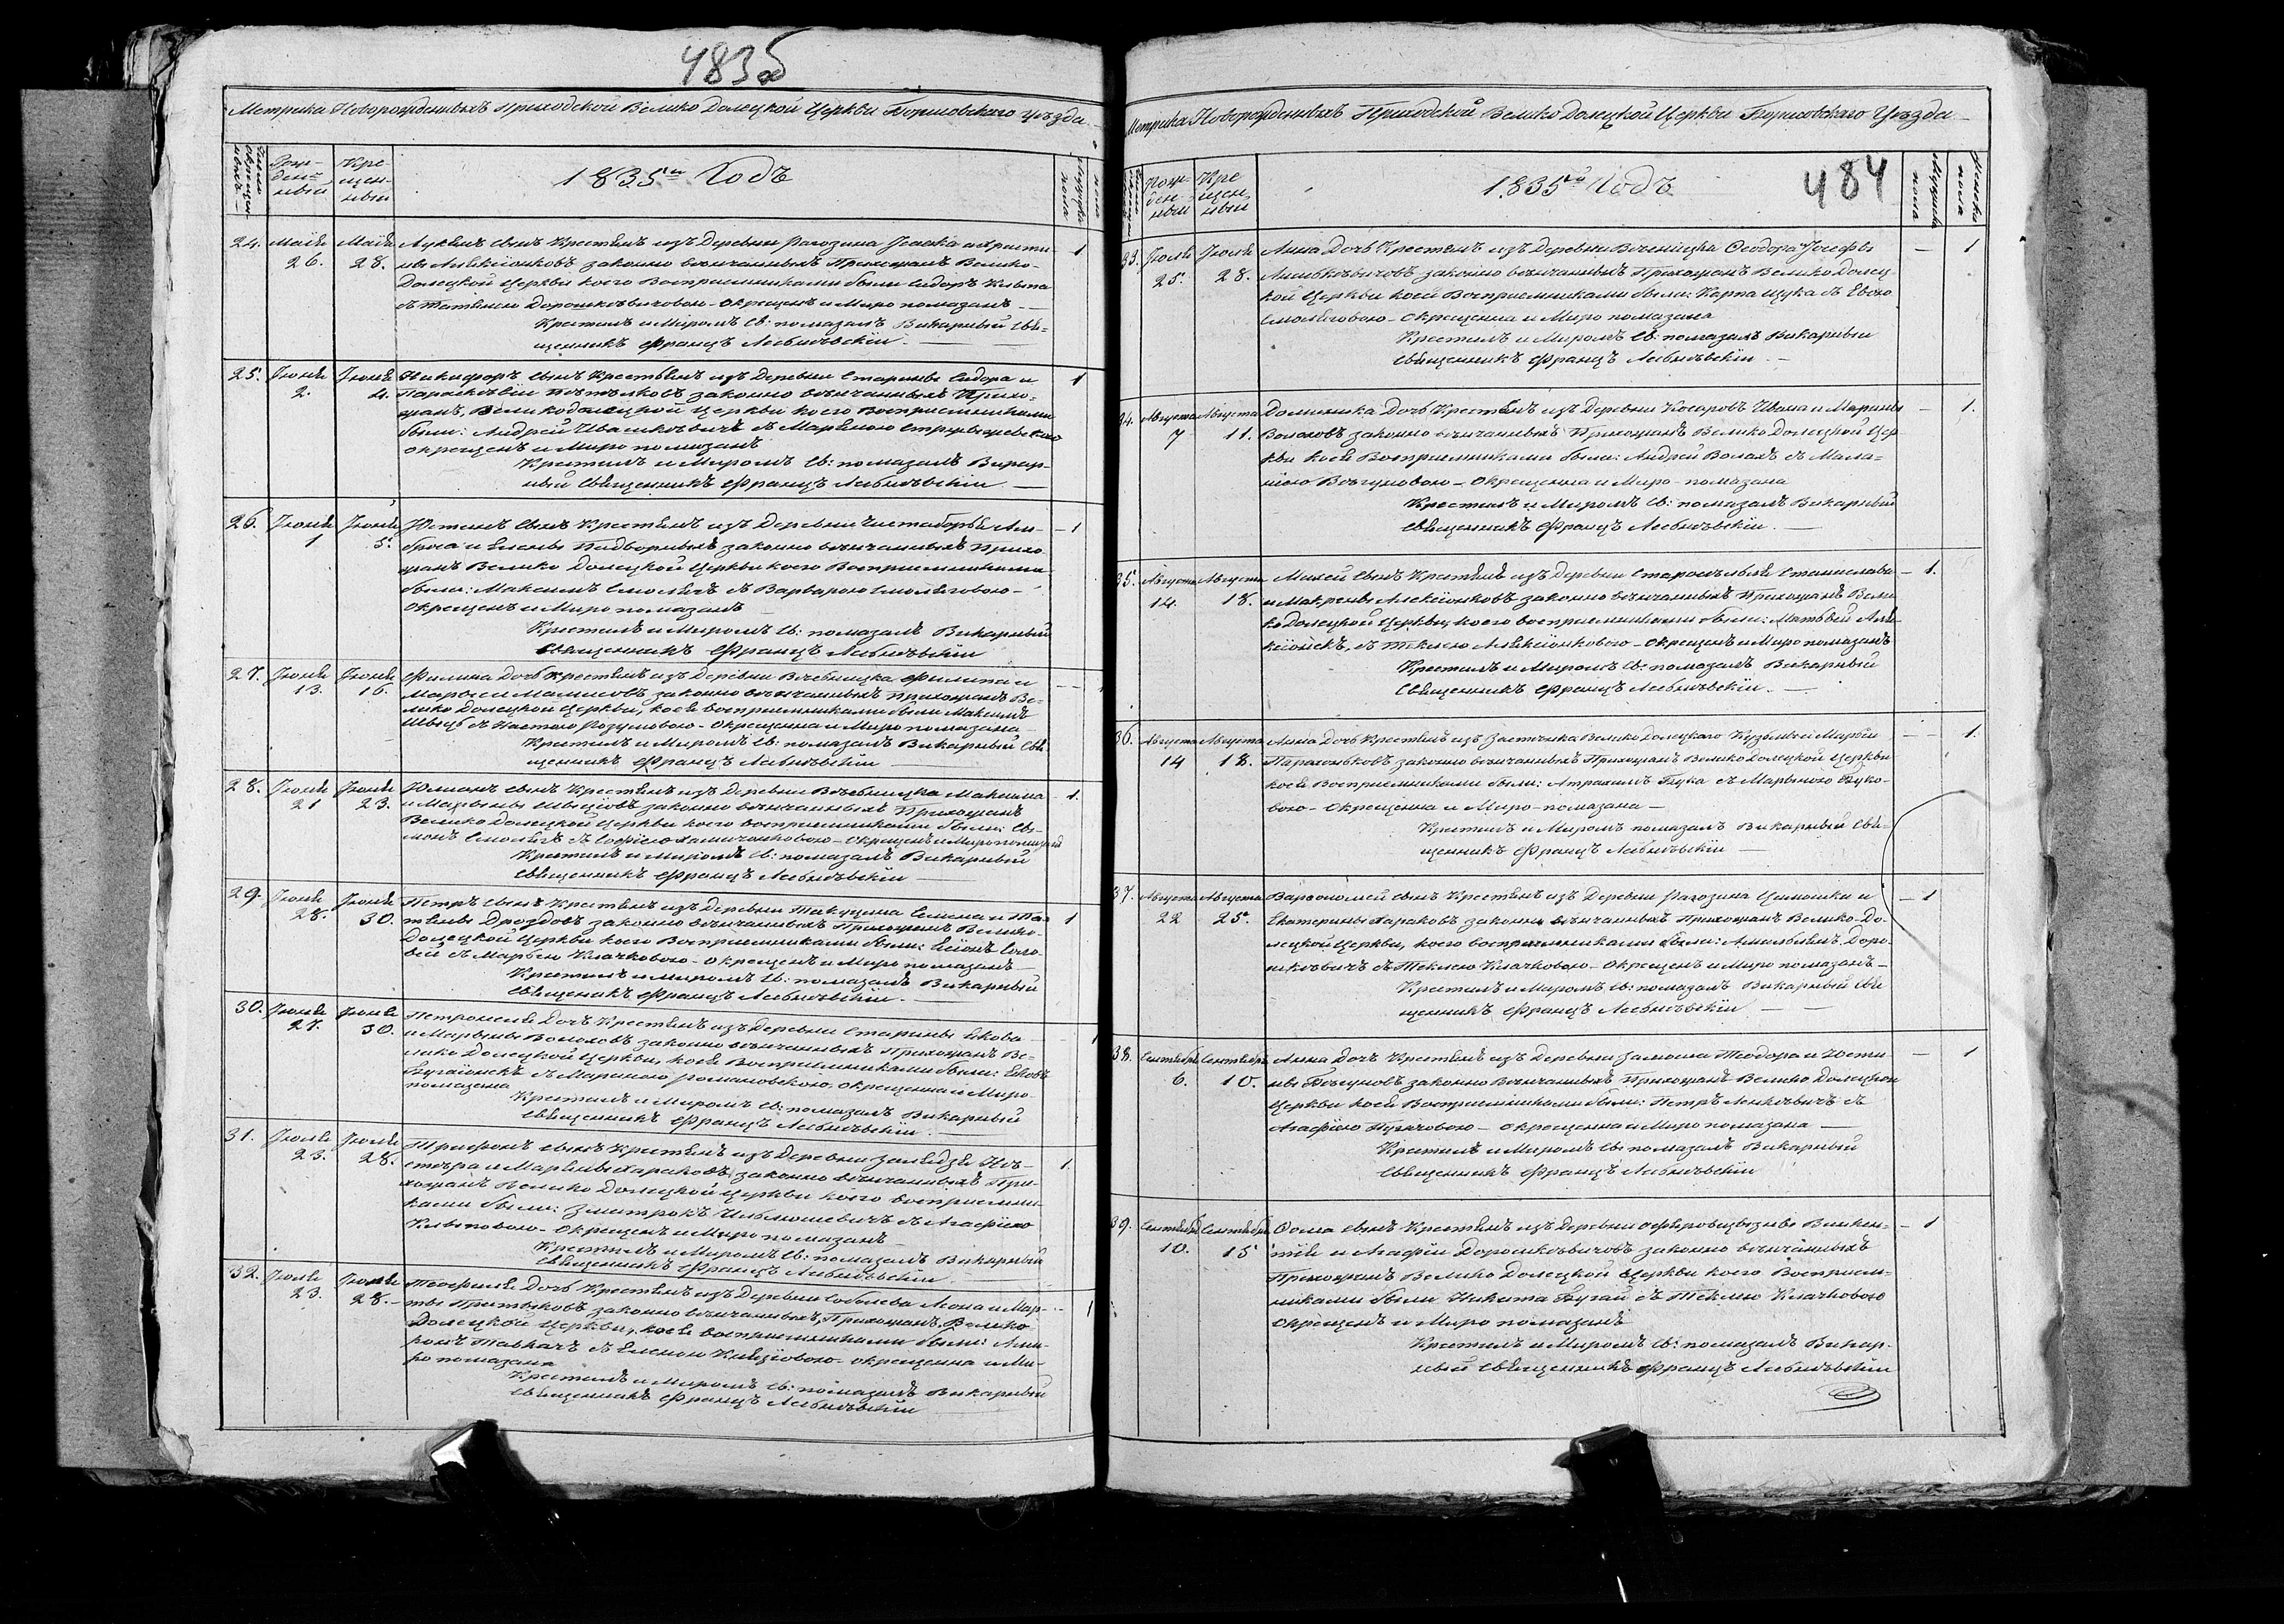 483б
Метрика Новорожденныхъ Приходской Велико Долецкой Церкви Борисовскаго уѣзда
Число окрещен-
Рож-
ден-
ныи
Кре-
щен-
ныи
1835й Годъ
Мужска
пола
пола
24. Маія 26. Маія 28. Лукянъ сынъ Крестянъ изъ Деревни Рагозина Исаака и Христи-
ны Алексіонковъ законно вѣнчанныхъ Прихожанъ Велико-
Долецкой Церкви коего Воспріемниками были Сидоръ
съ Татяною Дорошкѣвичовою - Окрещенъ и Миро помазанъ 1
Крестилъ и Миромъ Св: помазалъ Викарный Свя-
щенникъ Францъ
25. Іюня 2. Іюня 4. Никифоръ сынъ Крестьянъ изъ Деревни Старины Сидора и
Параскѣвіи законно вѣнчанныхъ Прихо-
жанъ, Великодолецкой Церкви коего Воспріемниками
были: Андрей съ Маряною
окрещенъ и Миро помазанъ 1
Крестилъ и Миромъ Св: помазалъ Викар-
ный Священникъ Францъ
26. Іюня 1 Іюня 5. Юстинъ сынъ Крестянъ изъ Деревни Ам-
броса и Елены Подворныхъ законно вѣнчанныхъ Прихо-
жанъ Велико Долецкой Церкви коего Воспріемниками
были: Максимъ Смолягъ съ Варварою Смоляговою -
Окрещенъ и Миро помазанъ 1
Крестилъ и Миромъ Св: помазалъ Викарный
Священникъ Францъ
27. Іюня 13. Іюня 16. Дочь Крестянъ изъ Деревни Филипа и
Марьи законно вѣнчанныхъ Прихожанъ Ве-
лико Долецкой Церкви, коея воспріемниками были Максимъ
Швецъ съ Розумовою - Окрещенна и Миро помазана
Крестилъ и Миромъ Св: помазалъ Викарный Свя
щенникъ Францъ
28. Іюня 21 Іюня 23. Юліанъ сынъ Крестянъ изъ Деревни Максима
и Марьяны Швецовъ законно вѣнчанныхъ Прихожанъ
Велико Долецкой Церкви коего воспріемниками были: Се-
монъ Смолягъ съ Софіею - Окрещенъ и Миро 1.
Крестилъ и Миромъ Св: помазалъ Викарный
Священникъ Францъ
29. Іюня 28. Іюня 30. Петръ сынъ Крестянъ изъ Деревни Семена и Та-
тяны Дроздовъ законно вѣнчанныхъ Прихожанъ Велико-
Долецкой Церкви коего Воспріемниками были: Соло-
вей съ Марьею Клачковою - Окрещенъ и Миро помазанъ 1
Крестилъ и Миромъ Св: помазалъ Викарный
Священникъ Францъ
30. Іюня 27. Іюня 30. Петронеля Дочь Крестянъ изъ Деревни Старины Якова
и Марьяны Волоховъ законно вѣнчанныхъ Прихожанъ Ве-
лико Долецкой Церкви, коея Воспріемниками были: Яковъ
съ Мариною Романовскою, окрещенна и Миро
помазана
Крестилъ и Миромъ Св: помазалъ Викарный
Священникъ Францъ
31. Іюля 23. Іюля 28. Трифонъ сынъ Крестянъ изъ Деревни Не-
стера и Маряны законно вѣнчанныхъ При-
хожанъ Велико Долецкой Церкви коего воспріемни-
ками были: Змитрокъ съ Агафіею
Окрещенъ и Миро помазанъ 1.
Крестилъ и Миромъ Св: помазалъ Викарный
Священникъ Францъ
32. Іюля 23. Іюля 28. Теофиля Дочь Крестянъ изъ Деревни Соболева Леона и Мар-
ты законно вѣнчанныхъ, Прихожанъ Велико
Долецкой Церкви, коея воспріемниками были:
съ Еленою окрещенна и Ми-
ро помазана
Крестилъ и Миромъ Св: помазалъ Викарный
Священникъ Францъ
Метрика Новорожденныхъ Приходской Велико Долецкой Церкви Борисовскаго Уѣзда
Рож-
ден-
ныи
Кре
щен-
ныи
1835й Годъ
484
Мужска
пола
Женска
пола
33. Іюля 25. Іюля 28. Анна Дочь Крестянъ изъ Деревни Ѳеодора Іосефы
законно вѣнчанныхъ Прихожанъ Велико Долец-
кой Церкви коей Воспріемниками были: Карпа Щука съ Евою
Смоляговою - Окрещенна и Миро помазана 1
Крестилъ и Миромъ Св: помазалъ Викарный
Священникъ Францъ
34. Августа 7 Августа 11. Доминика Дочь Крестянъ изъ Деревни Косаровъ Ивана и Марины
Волоховъ законно вѣнчанныхъ Прихожанъ Велико Долецкой Цер-
кви коея Воспріемниками были: Андрей Волахъ съ Мала-
ніею - Окрещенна и Миро - помазана 1.
Крестилъ и Миромъ Св: помазалъ Викарный
Священникъ Францъ
35. Августа 14. Августа 18. сынъ Крестянъ изъ Деревни Станислава
и Макрены Алексіонковъ законно вѣнчанныхъ Прихожанъ Вели
ко Долецкой Церкви, коего воспріемниками были: Матвѣй Але-
ксіонокъ, съ Теклею Алексіонковою - Окрещенъ и Миро помазанъ 1.
Крестилъ и Миромъ Св: помазалъ Викарный
Священникъ Францъ
36. Августа 14 Августа 18. Анна Дочь Крестянъ изъ Застѣнка Велико Долецкаго Кузьмы и Маріи
законно вѣнчанныхъ Прихожанъ Велико Долецкой Церкви
коея Воспріемниками были: Бука съ Марьяною Буко-
вою - Окрещенна и Миро - помазана 1.
Крестилъ и Миромъ помазалъ Викарный Свя-
щенникъ Францъ
37. Августа 22 Августа 25. Варѳоломей сынъ Крестянъ изъ Деревни Рагозина Цимошки и
Екатерины законно вѣнчанныхъ Прихожанъ Велико-До-
лецкой Церкви, коего воспріемниками были: Доро-
шкѣвичъ съ Теклею Клачковою - Окрещенъ и Миро помазанъ - 1
Крестилъ и Миромъ Св: помазалъ Викарный Свя
щенникъ Францъ
38. Сентября 6. Сентября 10. Анна Дочь Крестянъ изъ Деревни Замоша Теодора и Юсти
ны законно вѣнчанныхъ Прихожанъ Велико Долецкой
Церкви коея Воспріемниками были: Петръ съ
Агафіею - Окрещенна и Миро помазана 1
Крестилъ и Миромъ Св: помазалъ Викарный
Священникъ Францъ
39. Сентября 10. Сентября 15 Ѳома сынъ Крестянъ изъ Деревни Викен-
тія и Агафіи Дорошкѣвичовъ законно вѣнчанныхъ
Прихожанъ Велико Долецкой Церкви коего Воспріем-
никами были Никита Бугай съ Теклею Клачковою
Окрещенъ и Миро помазанъ 1
Крестилъ и Миромъ Св: помазалъ Викар-
ный Священникъ Францъ